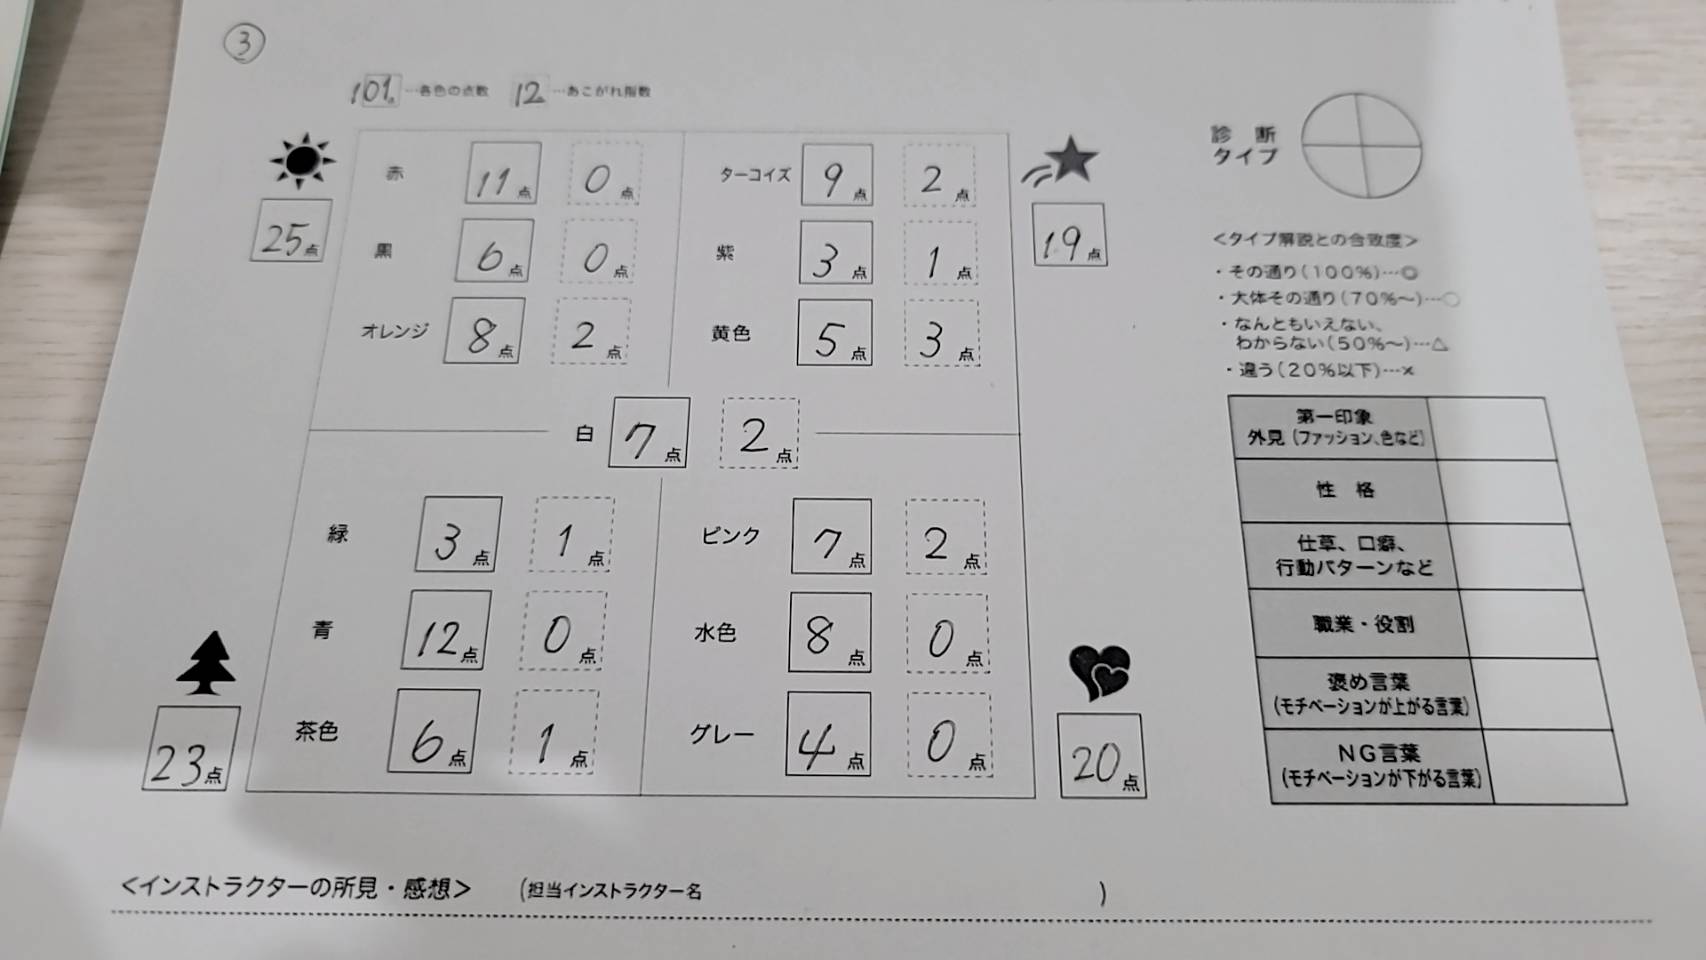 ③
101点…各色の点数 12…あこがれ指数
赤 11点 0点
黒 6点 0点
オレンジ 8点 2点
25点
ターコイズ 9点 2点
紫 3点 1点
黄色 5点 3点
19点
白 7点 2点
緑 3点 1点
青 12点 0点
茶色 6点 1点
23点
ピンク 7点 2点
水色 8点 0点
グレー 4点 0点
20点
診断
タイプ
＜タイプ解説との合致度＞
・その通り(100%)…◎
・大体その通り(70%～)…○
・なんともいえない、
わからない(50%～)…△
・違う(20%以下)…×
第一印象
外見（ファッション、色など）
性格
仕草、口癖、
行動パターンなど
職業・役割
褒め言葉
(モチベーションが上がる言葉)
ＮＧ言葉
(モチベーションが下がる言葉)
＜インストラクターの所見・感想＞ （担当インストラクター名 ）